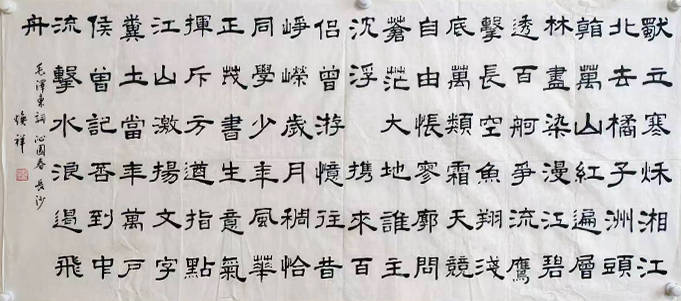 獨立寒秋湘江
北去橘子洲頭
看萬山紅遍層
林盡染漫江碧
透百舸爭流鷹
擊長空魚翔淺
底萬類霜天競
自由悵寥廓問
蒼茫大地誰主
沈浮 携來百
侶曾游憶往昔
崢嶸歲月稠恰
同學少年風華
正茂書生意氣
揮斥方遒指點
江山激揚文字
糞土當年萬戶
侯曾記否到中
流擊水浪遏飛
舟
毛澤東詞 沁園春 長沙
煥祥